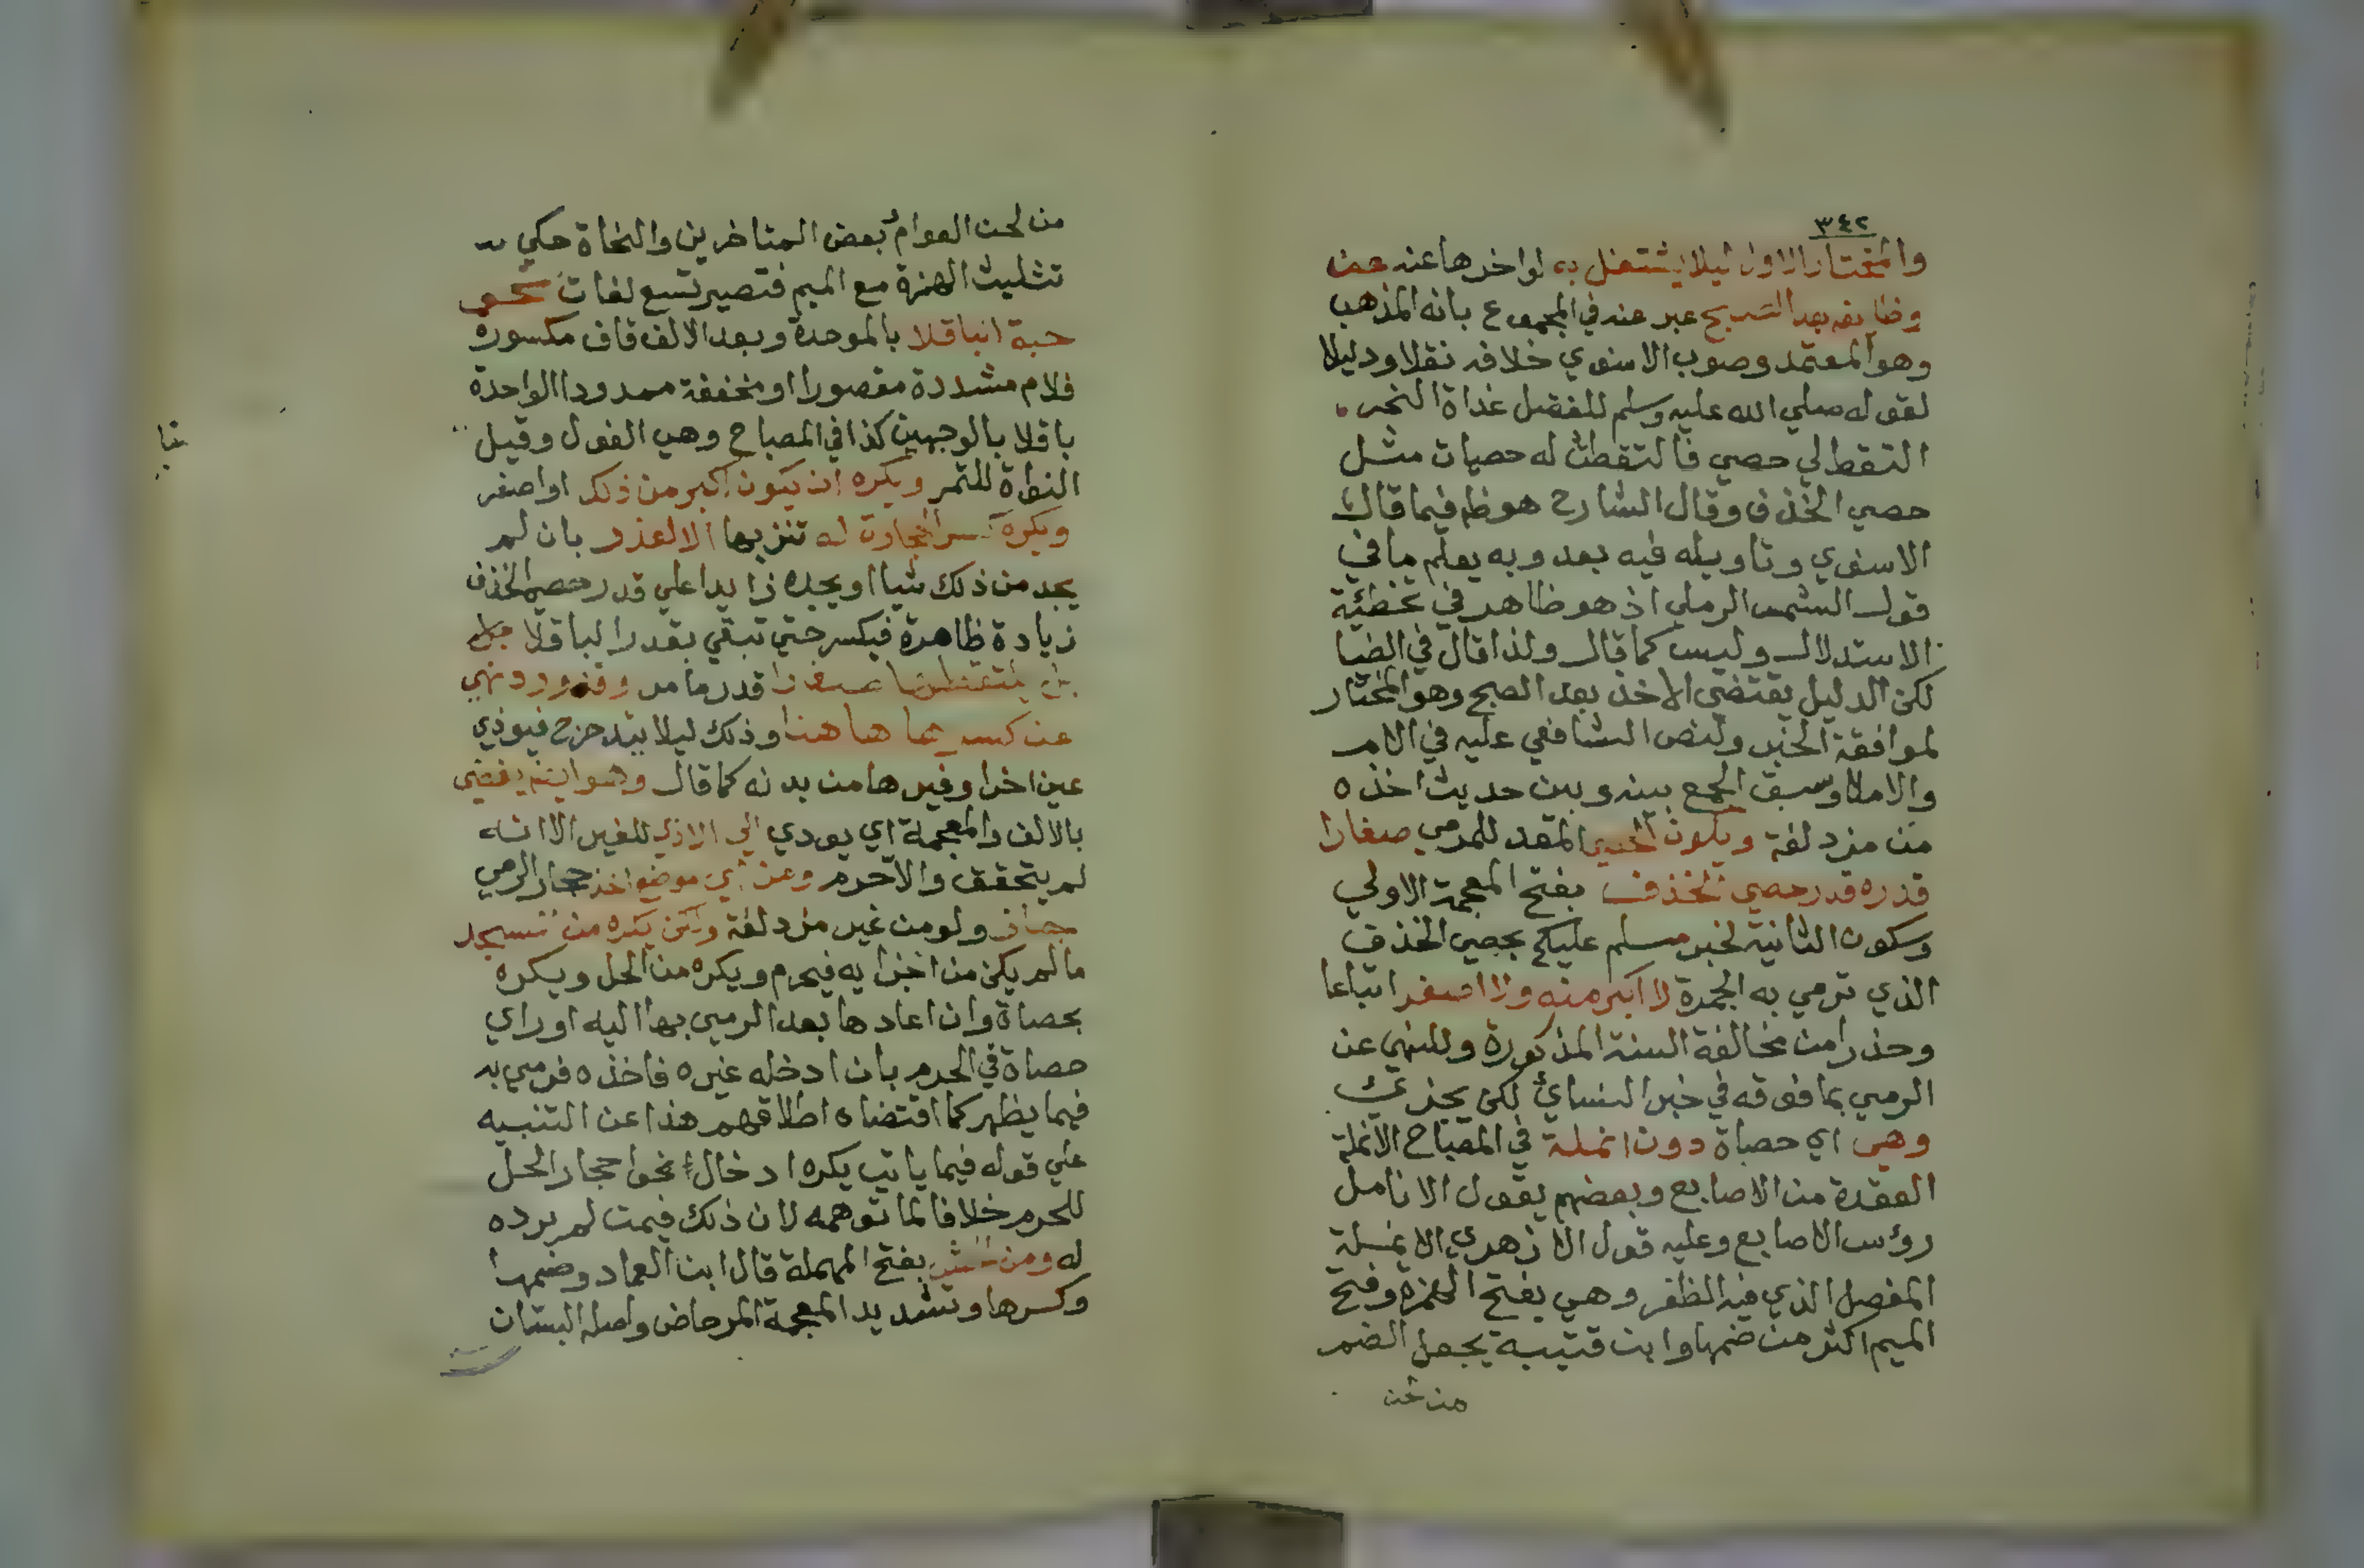 ٣٤٢
والمختار الاول ليلا يشتغل به لواخرها عنه عن
وظايفه بعد الصبح عبر عنه في المجموع بانه المذهب
وهو المعتمد وصوب الاسنوي خلافه نقلا ودليلا
لقوله صلي الله عليه وسلم للفضل غداة النحر
التقط لي حصي فالتقطت له حصيات مثل
حصي الخذف وقال الشارح هو ظ فيما قال
الاسنوي وتاويله فيه بعد وبه يعلم ما في
قول الشمس الرملي اذ هو ظاهر في تخطئة
الاستدلال وليس كما قال ولذا قال في الضيا
لكن الدليل يقتضي الاخذ بعد الصبح وهو المختار
لموافقة الخبر ولنص الشافعي عليه في الام
والاملا وسبق الجمع بينه وبين حديث اخذه
من مزدلفة ويكون الحصي المعد للمرمي صغارا
قدره قدر حصي الخذف بفتح المعجمة الاولي
وسكون الثانية لخبر مسلم عليكم بحصي الخذف
الذي ترمي به الجمرة لا اكبر منه ولا اصغر اتباعا
وحذرا من مخالفة السنة المذكورة وللنهي عن
الرمي بما فوقه في خبر النسائي لكن يجزئ
وهي اي حصاة دون انملة في المصباح الانملة
العقدة من الاصابع وبعضهم يقول الانامل
رؤس الاصابع وعليه قول الازهري الانملة
المفصل الذي فيه الظفر وهي بفتح الهمزة وفتح
الميم اكثر من ضمها وابن قتيبة يجعل الضم
من لحن
من لحن العوام بعض المتاخرين والنحاة حكي
تثليث الهمزة مع الميم فتصير تسع لغات نحو
حبة الباقلا بالموحدة وبعد الالف قاف مكسورة
فلام مشددة مقصورا او مخففة ممدودا الواحدة
باقلا بالوجهين كذا في المصباح وهي الفول وقيل
النواة للتمر ويكره ان يكون اكبر من ذلك او اصغر
ويكره كسر الحجارة له تنزيها الا لعذر بان لم
يجد من ذلك شيا او يجده زايدا علي قدر حصي الخذف
زيادة ظاهرة فيكسر حتي تبقي بقدر الباقلا
بل يلتقطها صغارا قدر ما مر وقد ورد نهي
عن كسرها هاهنا وذلك ليلا يتدحرج فيوذي
عين اخر او غيرها من بدنه كما قال وهو ايضا يفضي
بالالف والمعجمة اي يودي الي الاذي للغير الا انه
لم يتحقق والا حرم ومن اي موضع اخذ حجار الرمي
جاز ولو من غير مزدلفة ولكن يكره من المسجد
ما لم يكن من اجزايه فيحرم ويكره من الحل ويكره
بحصاة وان اعادها بعد الرمي بها اليه او راي
حصاة في الحرم بان ادخله غيره فاخذه فرمي به
فيما يظهر كما اقتضاه اطلاقهم هذا عن التنبيه
علي قوله فيما ياتي يكره ادخال نحو احجار الحل
للحرم خلافا لما توهمه لان ذلك فيمن لم يرده
له ومن الحش بفتح المهملة قال ابن العماد وضمها
وكسرها وتشديد المعجمة المرحاض واصله البستان